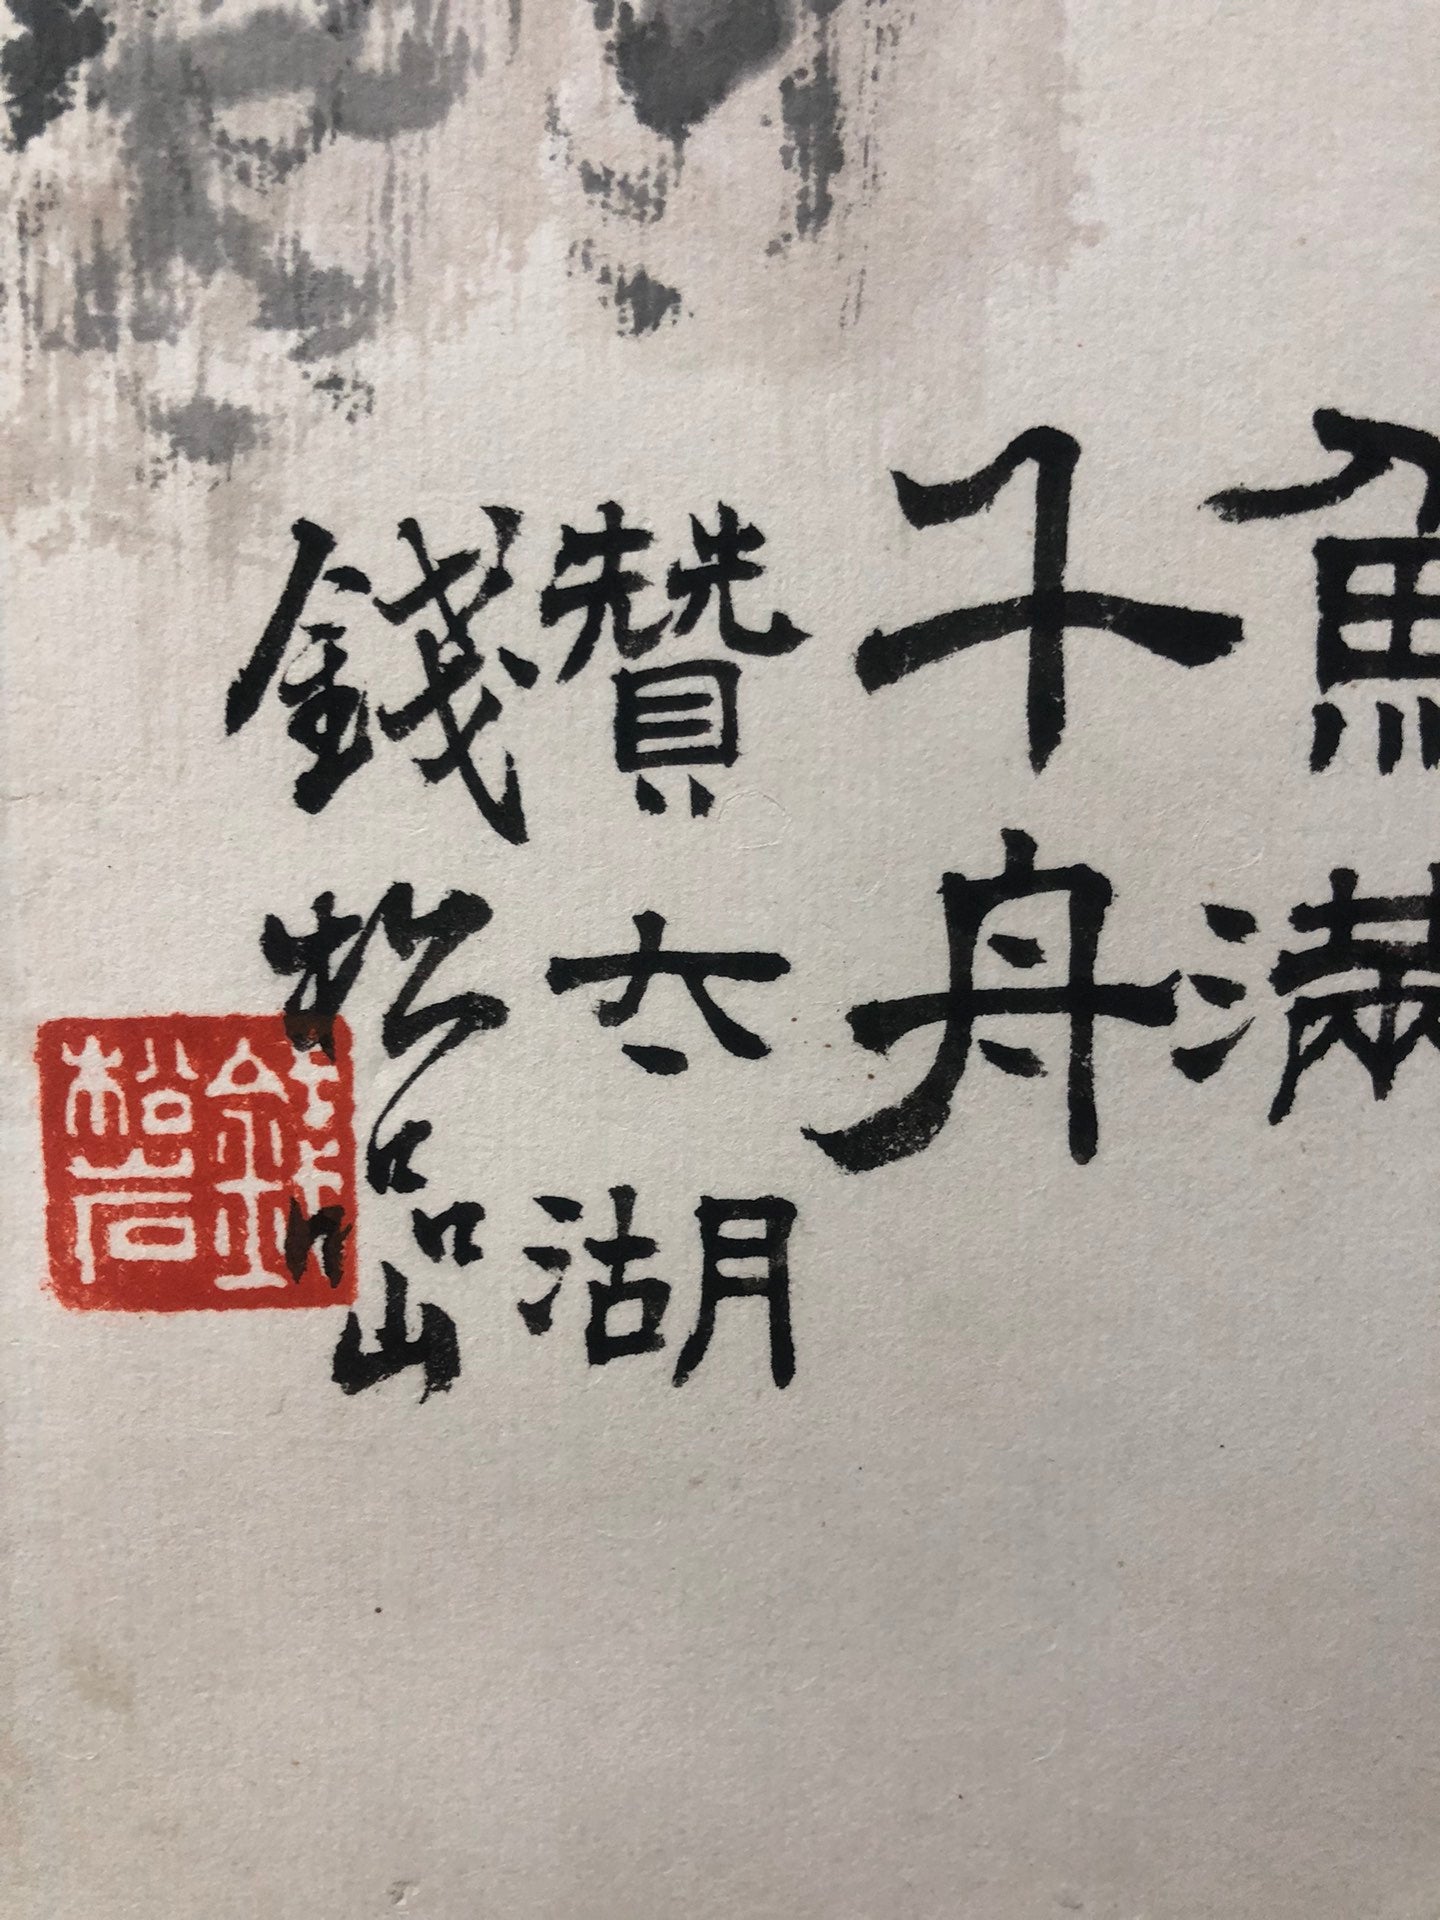 魚滿
千舟
贊太湖
錢松嵒
錢松岩